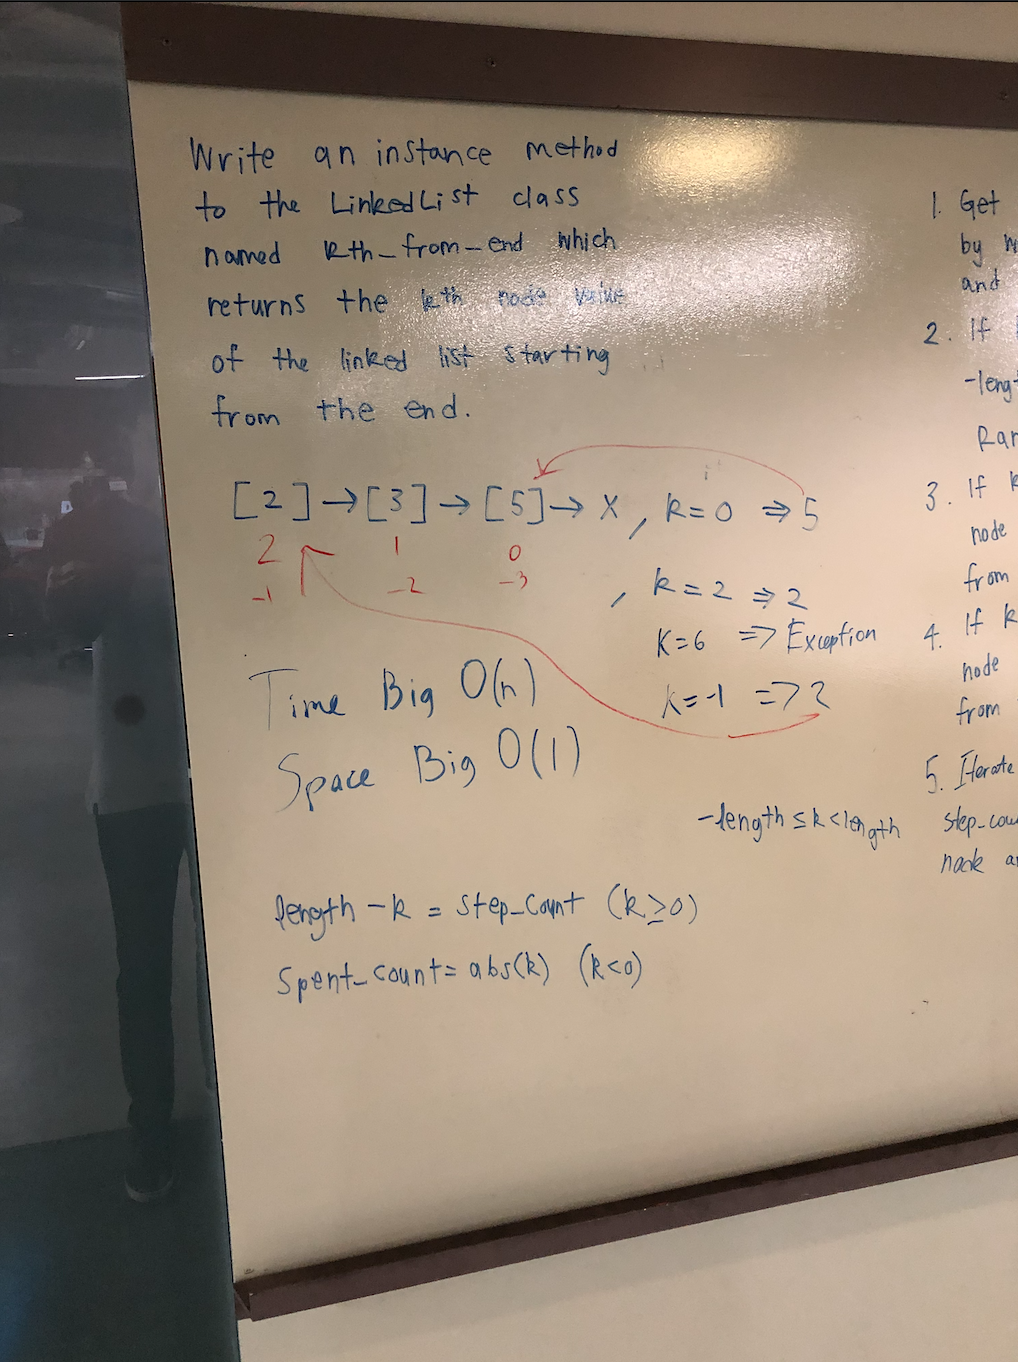 Write an instance method
to the LinkedList class
named kth_from_end which
returns the kth node value
of the linked list starting
from the end.
[2]→[3]→[5]→X, k=0 ⇒5
2 1 0
-1 -2 -3
, k=2 ⇒2
K=6 => Exception
k=-1 =>2
Time Big O(n)
Space Big O(1)
-length≤k<length
length-k = step_count (k≥0)
Spent_count= abs(k) (k<0)
1. Get
by
and
2. If
-leng
Ran
3. If k
node
from
4. If k
node
from
5. Iterate
step_cou